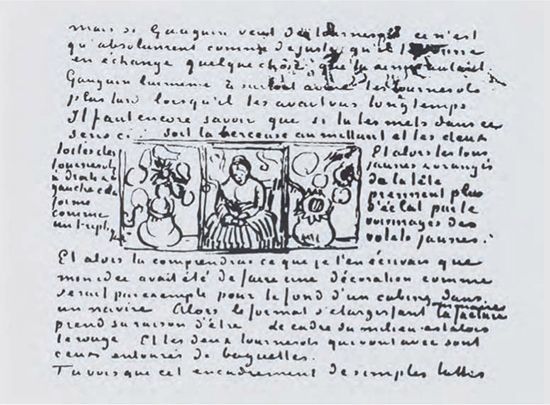 mais si Gauguin veut des tournesols ce n'est
qu'absolument comme de juste qu'il te donne
en échange quelque chose que tu aimes autant.
Gauguin lui même a surtout aimé les tournesols
plus tard lorsqu'il les avait vus longtemps
Il faut encore savoir que si tu les mets dans ce
sens ci: soit la berceuse au milieu et les deux
toiles des
tournesols
à droite & à
gauche cela
forme
comme
un triptyque
Et alors les tons
jaunes & orangés
de la tête
prennent plus
d'éclat par le
voisinages des
volets jaunes.
Et alors tu comprendras ce que je t'en écrivais que
mon idée avait été de faire une décoration comme
serait par exemple pour le fond d'un cabine dans
un navire Alors le format s'élargissant la facture
prend sa raison d'être. Le cadre du milieu est alors
le rouge Et les deux tournesols qui vont avec sont
ceux entourés de baguettes.
Tu vois que cet encadrement de simples lattes